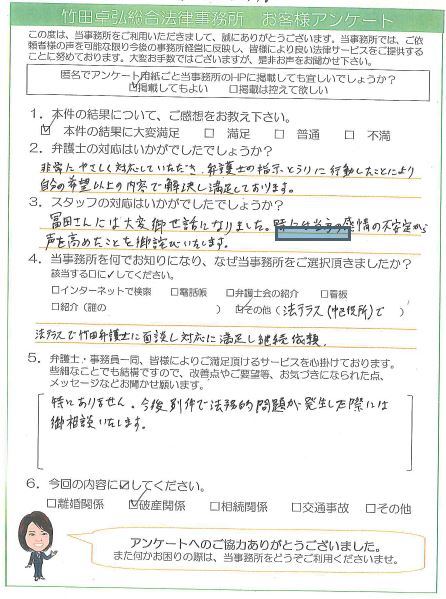 竹田卓弘総合法律事務所 お客様アンケート
この度は、当事務所をご利用いただきまして、誠にありがとうございます。当事務所では、ご依
頼者様の声を可能な限り今後の事務所経営に反映し、皆様により良い法律サービスをご提供する
ことに努めております。大変お手数ではございますが、是非お声をお聞かせ下さい。
匿名でアンケート用紙ごと当事務所のHPに掲載しても宜しいでしょうか?
☑掲載してもよい □掲載は控えて欲しい
1.本件の結果について、ご感想をお教え下さい。
☑ 本件の結果に大変満足 □ 満足 □ 普通 □ 不満
2.弁護士の対応はいかがでしたでしょうか?
非常にやさしく対応していただき、弁護士の指示どうりに行動したことにより
自分の希望以上の内容で解決し満足しております。
3.スタッフの対応はいかがでしたでしょうか?
冨田さんには大変御世話になりました。感情の不安定から
声を高めたことを御詫びいたします。
4.当事務所を何でお知りになり、なぜ当事務所をご選択頂きましたか?
該当する□に✓してください。
□インターネットで検索 □電話帳 □弁護士会の紹介 □看板
□紹介(誰の ) ☑その他(法テラス(中区役所)で )
法テラスで竹田弁護士に面談し対応に満足し継続依頼
5.弁護士・事務員一同、皆様によりご満足頂けるサービスを心掛けております。
些細なことでも結構ですので、改善点やご要望等、お気づきになられた点、
メッセージなどお聞かせ願います。
特にありません。今後別件で法務的問題が発生した際には
御相談いたします。
6.今回の内容に☑してください。
□離婚関係 ☑破産関係 □相続関係 □交通事故 □その他
アンケートへのご協力ありがとうございました。
また何かお困りの際は、当事務所をどうぞご利用くださいませ。